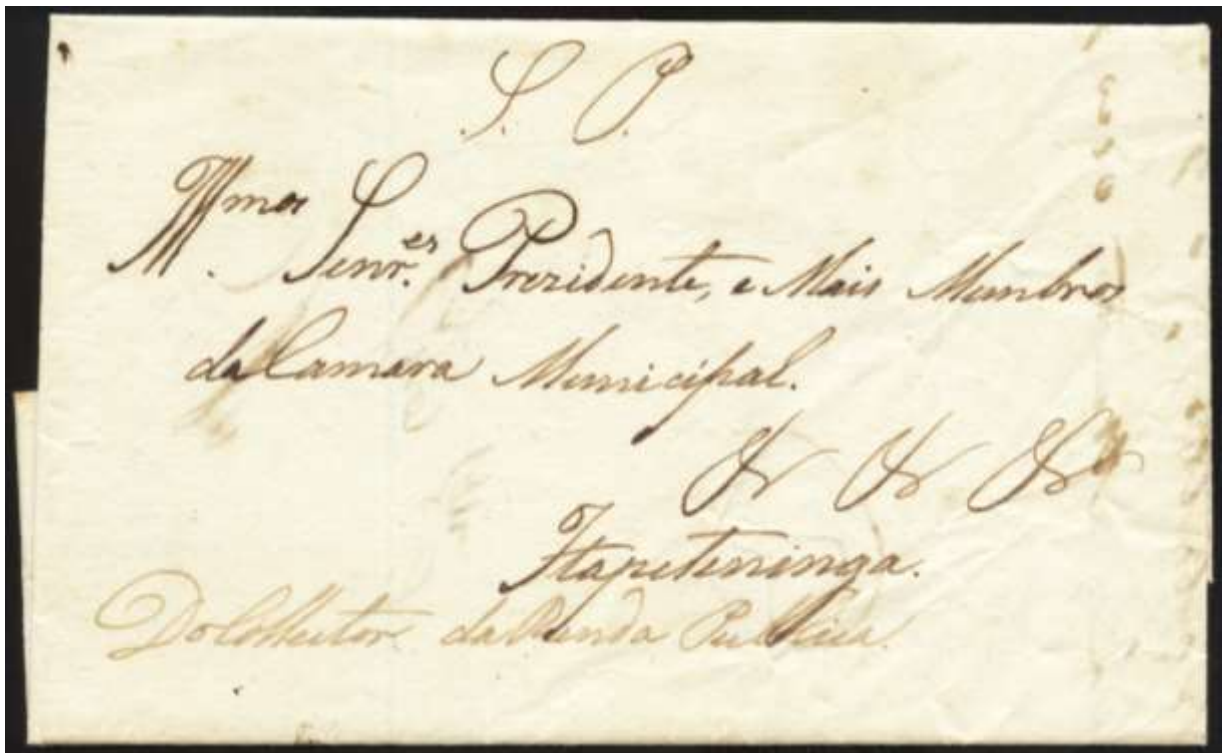 S. P.
Illmos Senr.es Prezidente, e Mais Membros
da Camara Municipal.
&r &r &r
Itapeteninga.
Do Colleitor da Renda Publica.